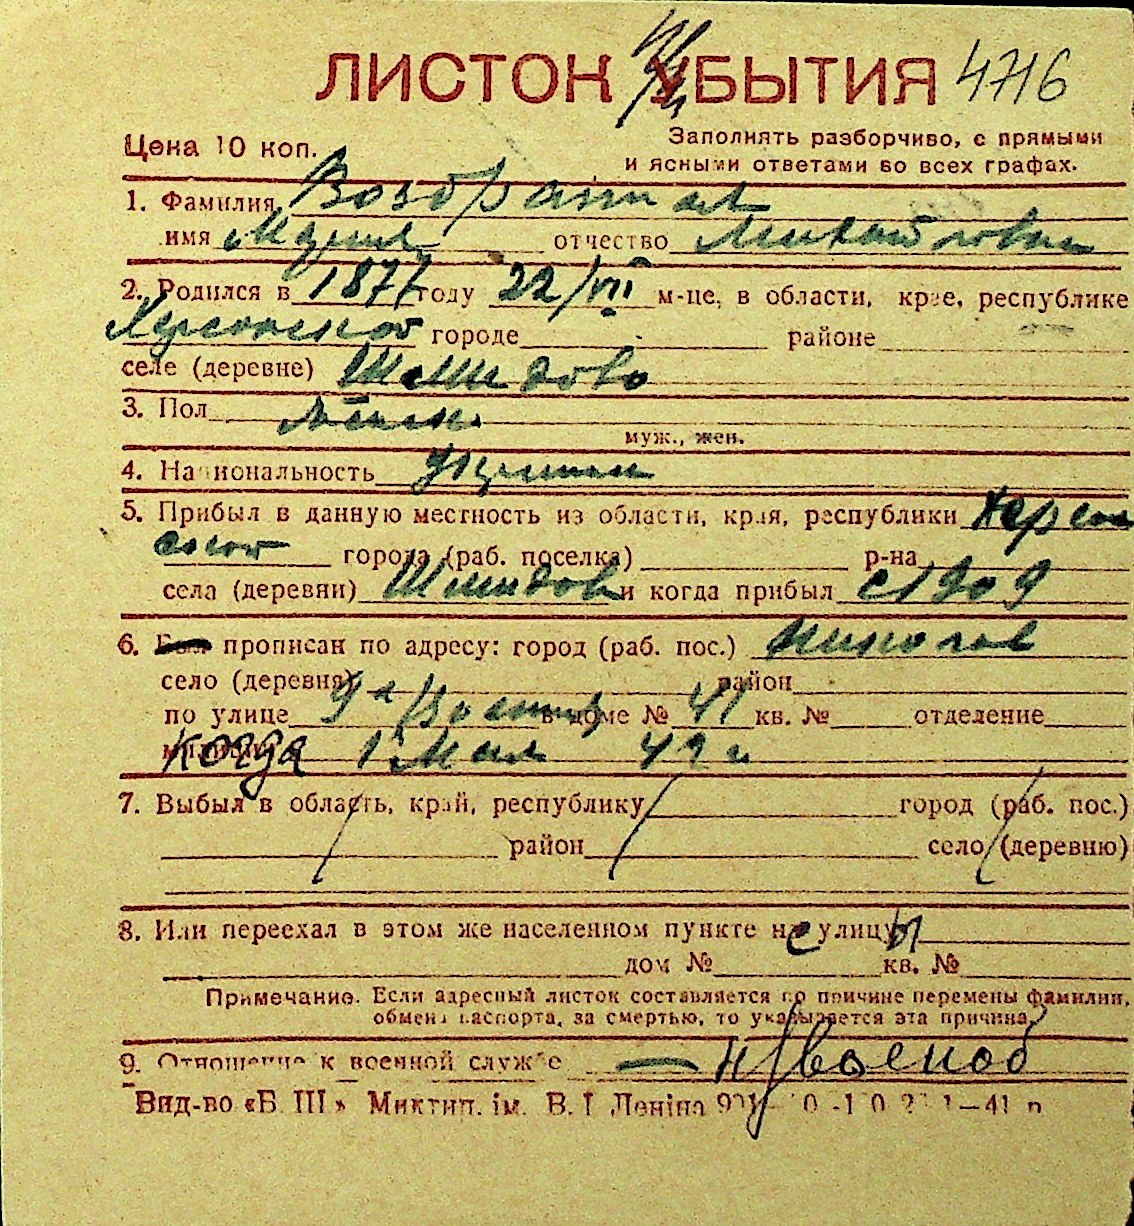 ЛИСТОК УБЫТИЯ 4716
Цена 10 коп.
Заполнять разборчиво, с прямыми
и ясными ответами во всех графах.
1. Фамилия
имя Мария отчество Михайловна
2. Родился в 1877 году 22/VII м-це, в области, крае, республике
Херсонской городе районе
селе (деревне) Шмидово
3. Пол женск
муж., жен.
4. Национальность
5. Прибыл в данную местность из области, края, республики Херсон
ской города (раб. поселка) р-на
села (деревни) Шмидов и когда прибыл с 1909
6. Был прописан по адресу: город (раб. пос.) Николаев
село (деревня) район
по улице 9я Военная в доме № 41 кв. № отделение
когда 1 Мая 42 г
7. Выбыл в область, край, республику город (раб. пос.)
район село (деревню)
8. Или переехал в этом же населенном пункте с улицы
дом № кв. №
Примечание. Если адресный листок составляется по причине перемены фамилии,
обмена паспорта, за смертью, то указывается эта причина
9. Отношение к военной службе — н/военоб
Вид-во «Б. Ш» Миктип. ім. В. І Леніна